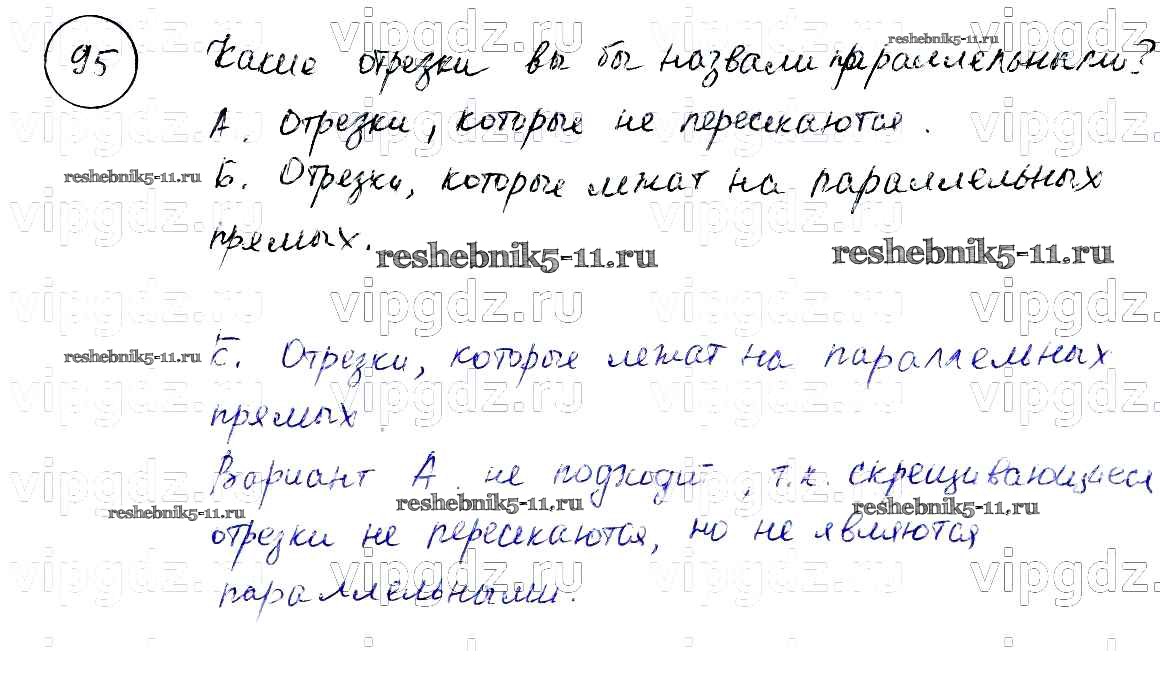 95 Какие отрезки вы бы назвали параллельными?
reshebnik5-11.ru
А. Отрезки, которые не пересекаются.
Б. Отрезки, которые лежат на параллельных
reshebnik5-11.ru
прямых.
reshebnik5-11.ru reshebnik5-11.ru
vipgdz.ru vipgdz.
Б. Отрезки, которые лежат на параллельных
reshebnik5-11.ru
прямых.
Вариант А не подходит, т.к. скрещивающиеся
reshebnik5-11.ru reshebnik5-11.ru reshebnik5-11.ru
отрезки не пересекаются, но не являются
vipgdz.ru vipgdz.ru vipgdz.
параллельными.